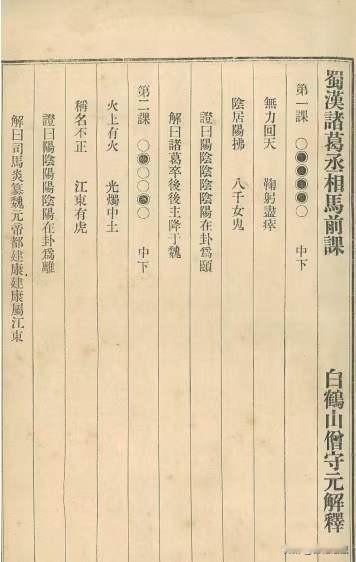 蜀漢諸葛丞相馬前課　白鶴山僧守元解釋
第一課　○●●●●○　中下
無力回天　鞠躬盡瘁
陰居陽拂　八千女鬼
證曰陽陰陰陰陰陽在卦爲頤
解曰諸葛卒後後主降于魏
第二課　○●○○●○　中下
火上有火　光燭中土
稱名不正　江東有虎
證曰陽陰陽陽陰陽在卦爲離
解曰司馬炎篡魏元帝都建康建康屬江東